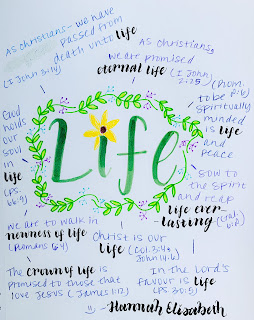 As Christians - we have
passed from
death unto life
(I John 3:14)
As Christians,
we are promised
eternal life (I John
2:25)
(Rom.
8:6)
to be
spiritually
minded
is life
and
peace
God
holds
our
soul
in
life
(PS.
66:9)
Life
sow to
the spirit
and reap
life ever-
lasting
(Gal.
6:8)
we are to walk in
newness of life
(Romans 6:4)
Christ is our
life (Col. 3:4,
John 14:6)
The crown of life is
promised to those that
love Jesus (James 1:12)
In the Lord's
favour is life
(PS 30:5)
- Hannah Elisabeth